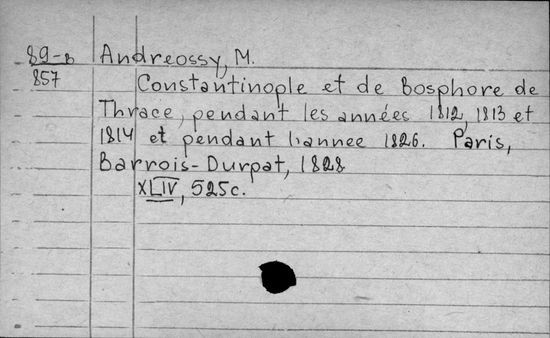 89-8 Andreossy, M.
857 Constantinople et de Bosphore de
Thrace, pendant les années 1812, 1813 et
1814 et pendant l'annee 1826. Paris,
Barrois-Durpat, 1828
XLIV, 525c.